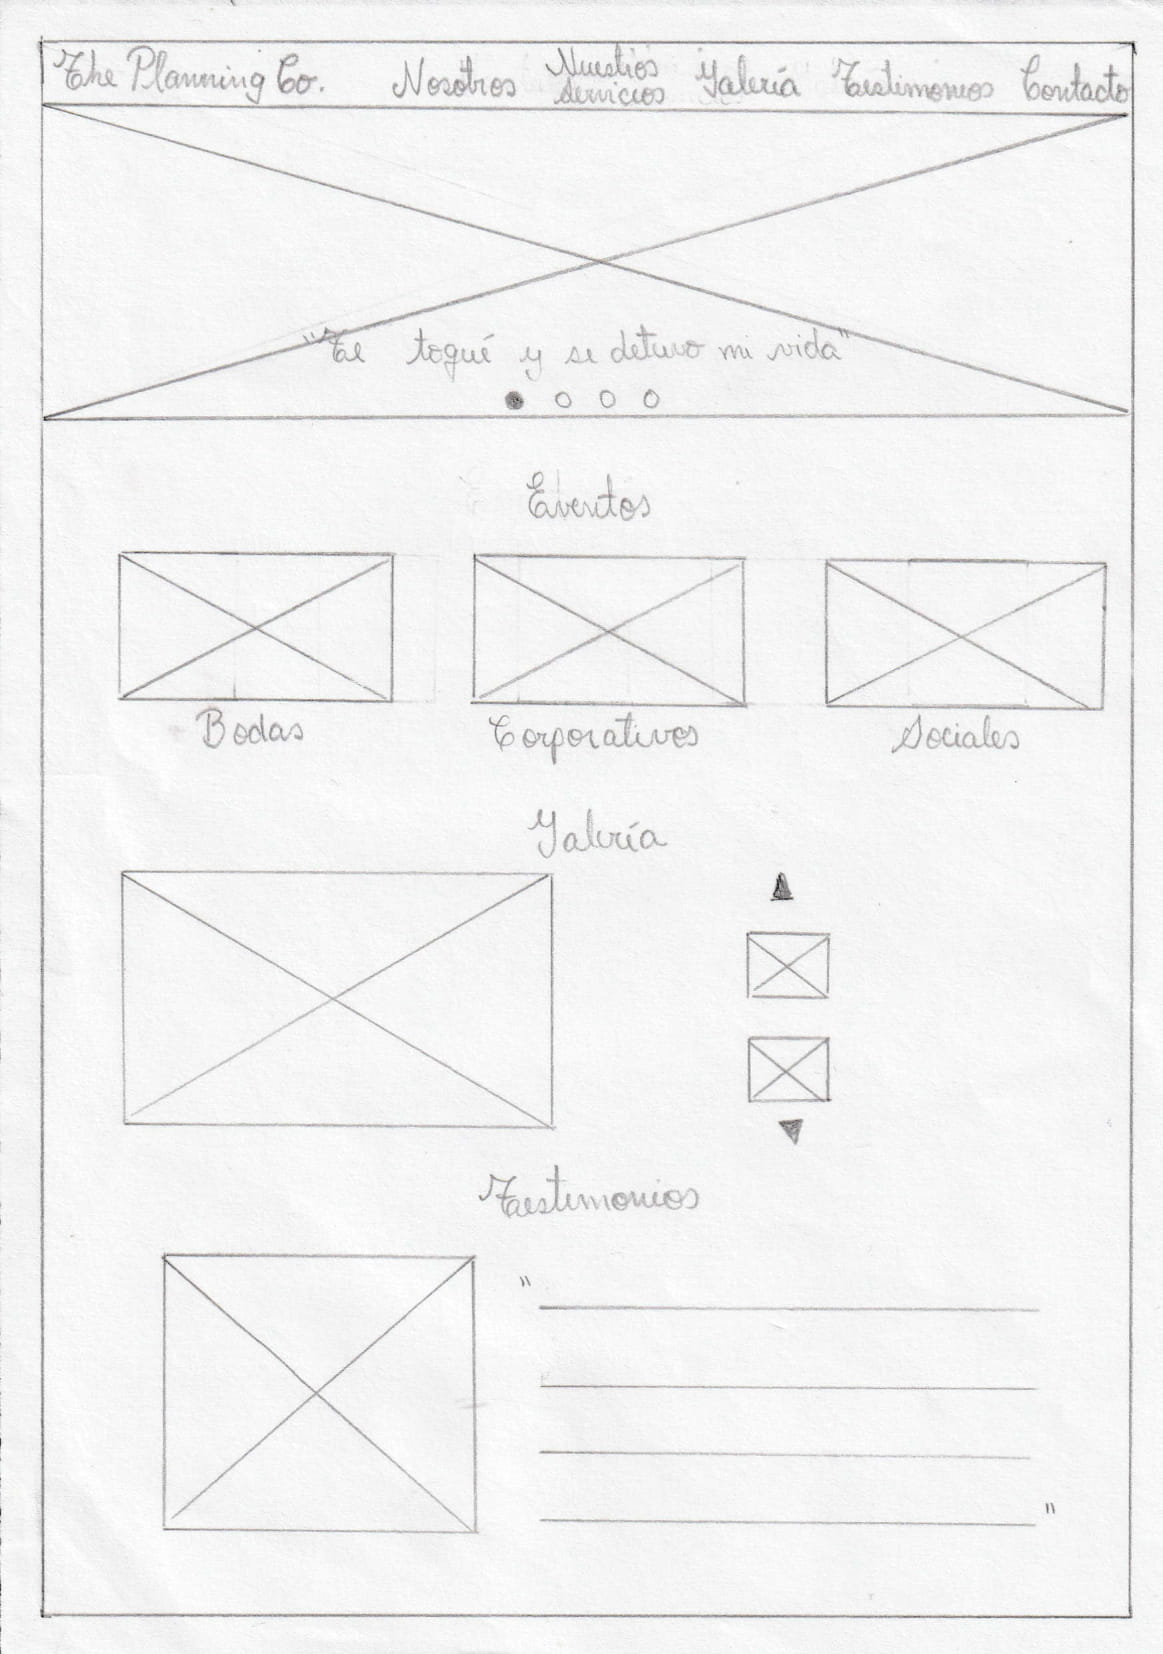 The Planning Co. Nosotros Nuestros Servicios Galería Testimonios Contacto
"Te toqué y se detuvo mi vida"
Eventos
Bodas Corporativos Sociales
Galería
Testimonios
"
"